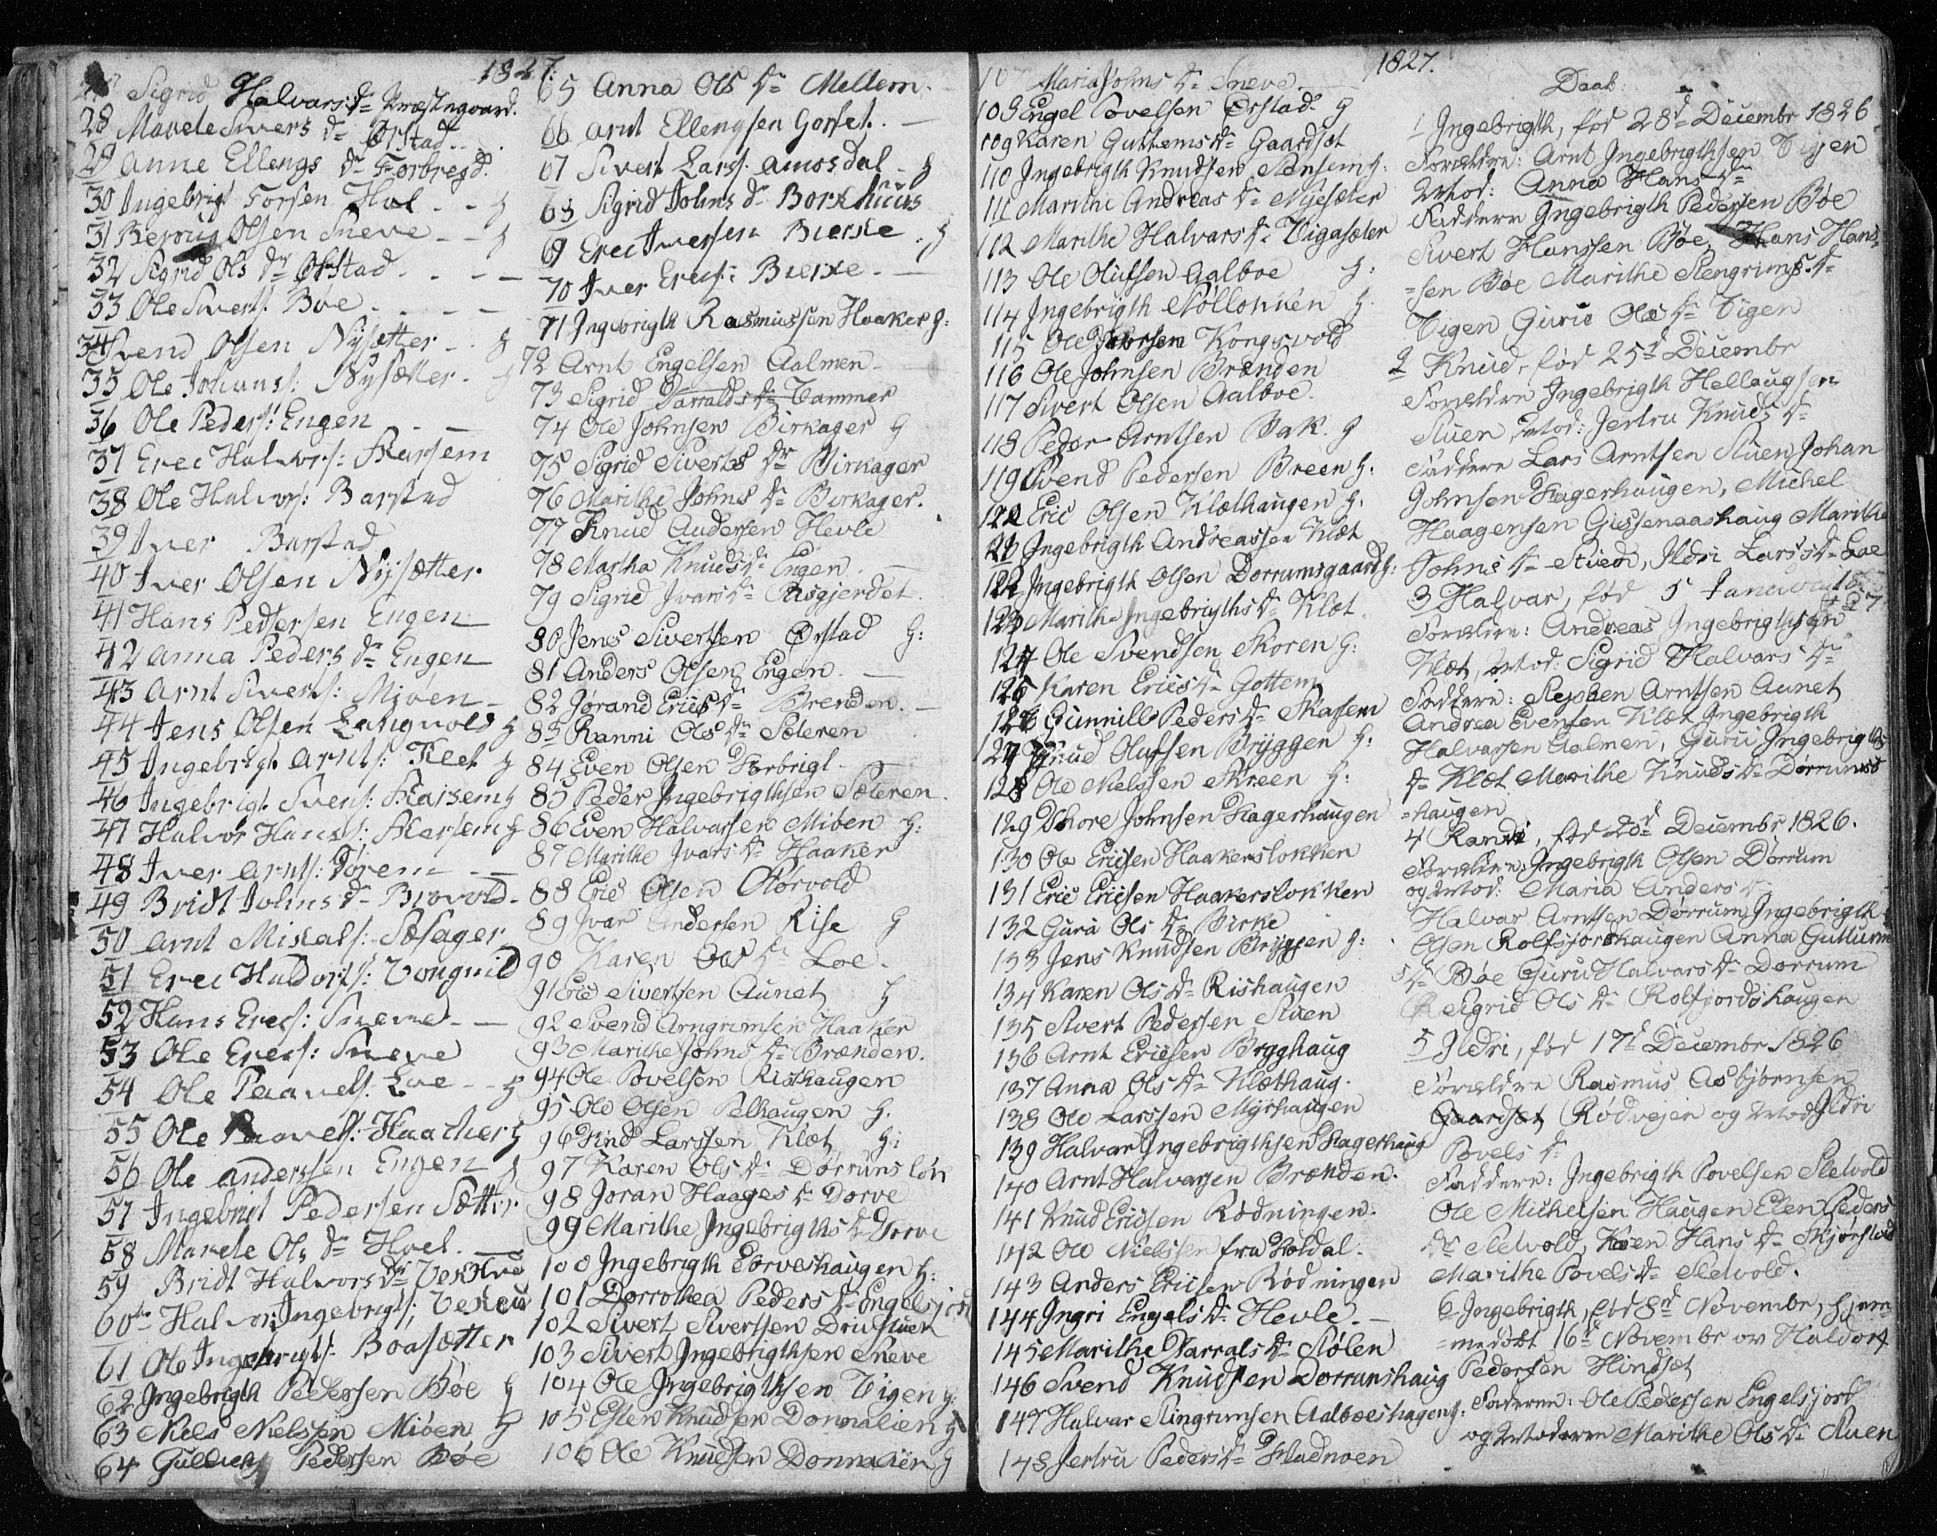 1827.
Sigrid Halvars Dr
28 Marete Sivers Dr Ørstad
29 Anne Ellengs Dr Forbregd.
30 Ingebrigt Torsen Hol - - g
31 Olsen Sneve - - g
32 Sigrid Ols Dr Ørstad. - - -
33 Ole Sivers: Bøe. - - -
34 Svend Olsen Nysetter - . g
35 Ole Johans: Nysetter. g
36 Ole Peders: Engen - -
37 Erec Halvors: Skarsem
38 Ole Halvors: Barstad
39 Iver Barstad
40 Iver Olsen Nysetter
41 Hans Pedersen Engen
42 Anna Peders Dr Engen
43 Arnt Siverts: Mioen -
44 Jens Olsen Langvold g
45 Ingebrigt Arnts: Kleet g
46 Ingebrigt Svens: Skarsem g
47 Halvor Hans: Skarsem g
48 Iver Arnts: Toren
49 Bridt Johns Dr
50 Arnt Mikals: Søsager
51 Erec Haldors: Vongnild
52 Hans Erecs: Sneve - -
53 Ole Erecs: Sneve
54 Ole Paavels: Loe - - g
55 Ole Paavels: Haacker g
56 Ole Anderssen Engen g
57 Ingebrigt Pedersen Sætter
58 Marete Ols Dr Hoel. -
59 Bridt Halvors Dr
60 Halvor Ingebrigts:
61 Ole Ingebrigts: Boasætter
62 Ingebrigth Pedersen Bøe g
63 Niels Nielssen Mioen g
64 Pedersen Bøe
65 Anna Ols Dr Mellem. -
66 Arnt Ellengsen Gorset. -
67 Sivert Lars: Amosdal - g
68 Sigrid Johns Dr Borkhuus
69 Erec Iversen Bierke . g
70 Iver Erecs: Bierke. -
71 Ingebrigth Rasmussen Haaker g:
72 Arnt Engelsen Aalmen - -
73 Sigrid Harralds Dr Tammer
74 Ole Johnsen Birkager g
75 Sigrid Siverts Dr Birkager
76 Marithe Johns Dr Birkager.
77 Knud Andersen Hevle
78 Martha Knuds Dr Engen. -
79 Sigrid Ivars Dr Risgjerdet.
80 Jens Sivertsen Ørstad g:
81 Anders Olsen Engen. -
82 Jørand Erics Dr Brenden. -
83 Ranni Ols Dr Sæteren
84 Even Olsen Forbrigt. -
85 Peder Ingebrigthsen Sæteren.
86 Even Halvarsen Mioen g:
87 Marithe Ivars Dr Haaker
88 Eric Olsen Storvold
89 Ivar Andersen Rise g
90 Karen Ols Dr Loe.
91 Eric Sivertsen Aunet g
92 Svend Arngrimsen Haaker
93 Marithe Johns Dr Brænden.
94 Ole Povelsen Risthaugen
95 Ole Olsen Pelhaugen g.
96 Larssen Klæt g:
97 Karen Ols Dr
98 Joran Haages Dr Dorve
99 Marithe Ingebrigths Dr Dorve
100 Ingebrigth Torveshaugen g:
101 Dorrothea Peders Dr Engelsjord
102 Sivert Sivertsen Drivstuen
103 Sivert Ingebrigthsen Sneve
104 Ole Ingebrigthsen Vigen g.
105 Esten Knudsen Donnalien g
106 Ole Knudsen Donnalien g
1827.
107 Maria Johns Dr Sneve. -
108 Engel Povelsen Ørstad. g
109 Karen Guttems Dr Gaardset
110 Ingebrigth Knudsen Stensem g:
111 Marithe Andreas Dr Nysæter
112 Marithe Halvars Dr Vigasæter
113 Ole Olufsen Aalboe g:
114 Ingebrigth Støllokken g.
115 Ole Kongsvold
116 Ole Johnsen Brænden
117 Sivert Olsen Aalboe.
118 Peder Arntsen Bak. g
119 Svend Pedersen Breen g:
120 Eric Olsen Klethaugen g.
21 Ingebrigth Andreassen Klæt
122 Ingebrigth Olsen Dorrumsgaard g:
123 Marithe Ingebrigths Dr Klæt.
124 Ole Svendsen Storen g:
125 Karen Erics Dr Gottem
126 Gunnill Peders Dr Skarsem
127 Knud Olufsen Bryggen g:
128 Ole Nielssen Skreen g:
129 Thore Johnsen Hagerhaugen
130 Ole Ericsen Haakerslokken
131 Eric Ericsen Haakerslokken
132 Gura Ols Dr Birke
133 Jens Knudsen Bryggen g:
134 Karen Ols Dr Rishaugen
135 Sivert Pedersen Stuen
136 Arnt Ericsen Brygghaug
137 Anna Ols Dr Klæthaug.
138 Ole Larssen Myrhaugen
139 Halvar Ingebrigthsen Hagerhaug
140 Arnt Halvarsen Brænden.
141 Knud Ericsen Rødningen.
142 Ole Nielssen fra Holdal.
143 Anders Ericsen Rødningen
144 Ingri Engels Dr Hevle. -
145 Marithe Harrals Dr Stølen
146 Svend Knudsen Dorrumshaug
147 Halvar Stingrimsen Aalboeshagen g.
148 Jertru Peders Dr Fladmoen
Daab.
1 Ingebrigth, fød 28d Decembr 1826
Forældre: Arnt Ingebrigthsen Vigen
Mod: Anna Hans Dr
Faddere Ingebrigth Pedersen Bøe
Sivert Hanssen Bøe, Hans Hans
=sen Bøe Marithe Stengrims Dr
Vigen Gurie Ols Dr Vigen
2 Knud, fød 25d Decembr
Forældre Ingebrigth Hellaugsen
Stuen Mod: Jertru Knuds Dr
Faddere Lars Arntsen Stuen Johan
Johnsen Hagerhaugen, Michel
Haagensen Gissenaashaug Marithe
Johns Dr Stuen, Ildri Lars Dr Loe
3 Halvar, fød 5 Januar 1827
Forældre: Andreas Ingebrigthsen
Klæt, Mod: Sigrid Halvars Dr
Faddere: Arntsen Aunet
Andrea Evensen Klæt Ingebrigth
Halvarsen Aalmen, Guru Ingebrigths
Dr Klæt Marithe Knuds Dr Dørrums
=haugen
4 Randi, fød Decembr 1826.
Forældre: Ingebrigth Olsen Dørrum
og Mod: Maria Anders Dr
Halvar Arntsen Dørrum, Ingebrigth
Olsen Rolfsjordhaugen Anna Gutturm
s Dr Bøe Guru Halvars Dr Dorrum
Sigrid Ols Dr Rolfjordshaugen
5 Ildri, fød 17d Decembr 1826
Forældre Rasmus Asbjørnsen
Gaardset Rødvejen og Mod Ildri
Povels Dr
Faddere: Ingebrigth Povelsen Sletvold
Ole Michelsen Haugen Elen Peders
Dr Sletvold, Hans Dr
Marithe Povels Dr Sletvold.
6 Ingebrigth, fød 8d Novembr, hjem=
=medøbt 16d Novembr av Haldor
Pedersen Hindset
Faderen: Ole Pedersen Engelsjord
og Moderen Marithe Ols Dr Stuen